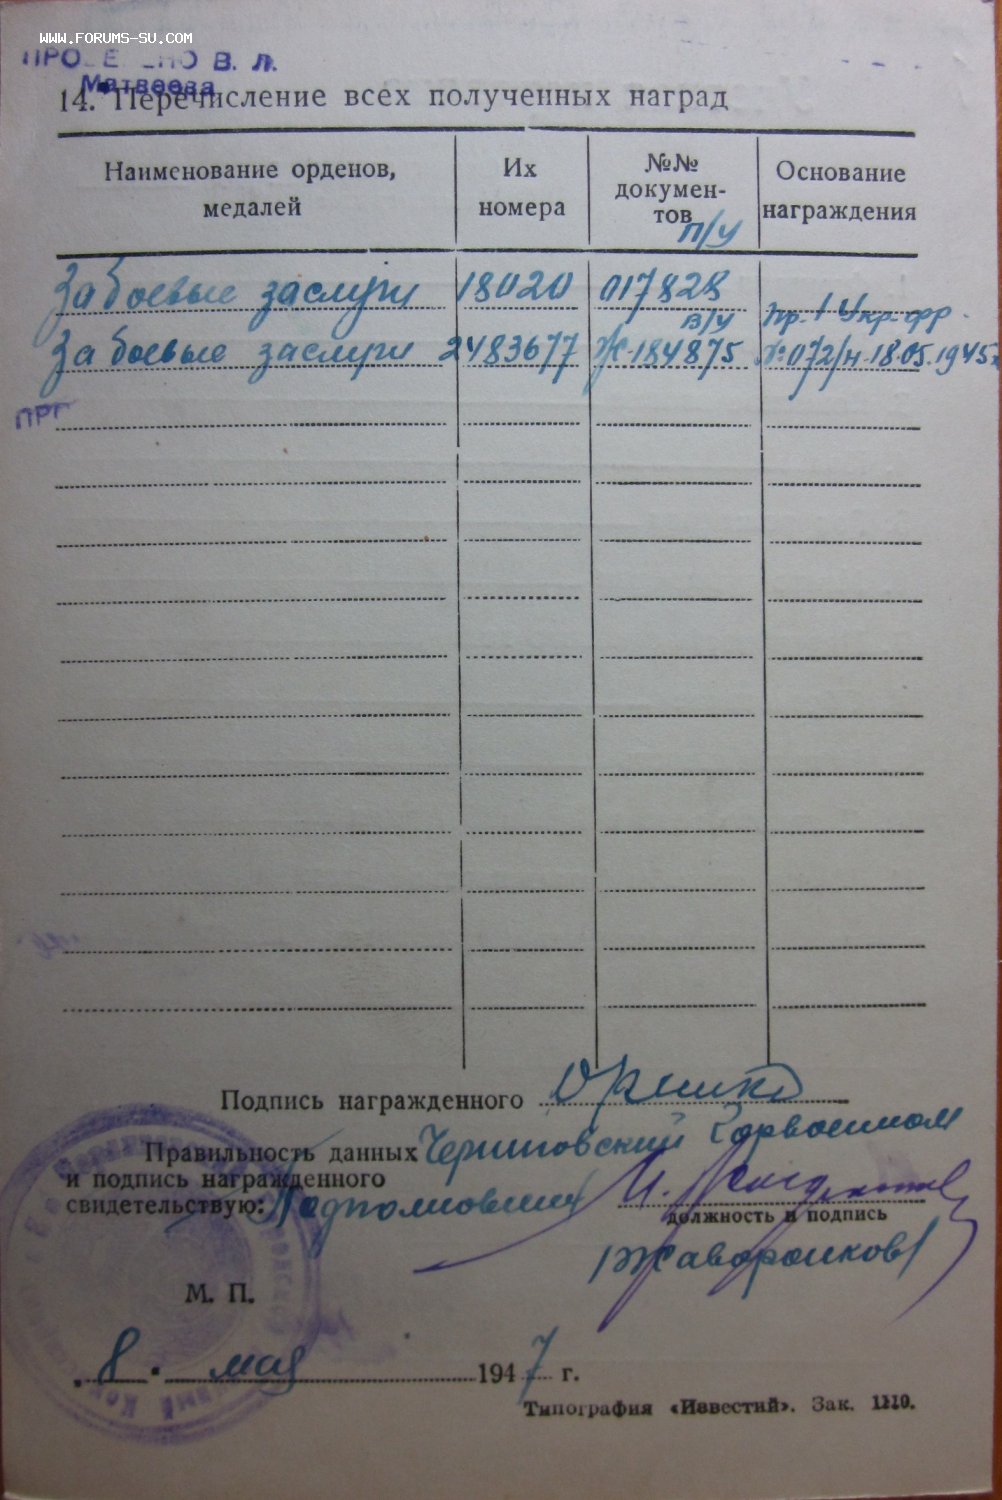 www.forums-su.com
В. Л.
Матвеева
14. Перечисление всех полученных наград
Наименование орденов, медалей
Их номера
№№ докумен-тов
Основание награждения
п/у
За боевые заслуги 18020 017828
в/у Пр. 1 Укр. фр.
За боевые заслуги 2483677 Ж-184875 №072/н-18.05.1945г
Подпись награжденного
Правильность данных Черниговский Горвоенком
и подпись награжденного
свидетельствую: Подполковник
должность и подпись
/Жаворонков/
М. П.
„ 8 " мая 1947 г.
Типография «Известий». Зак. 1110.